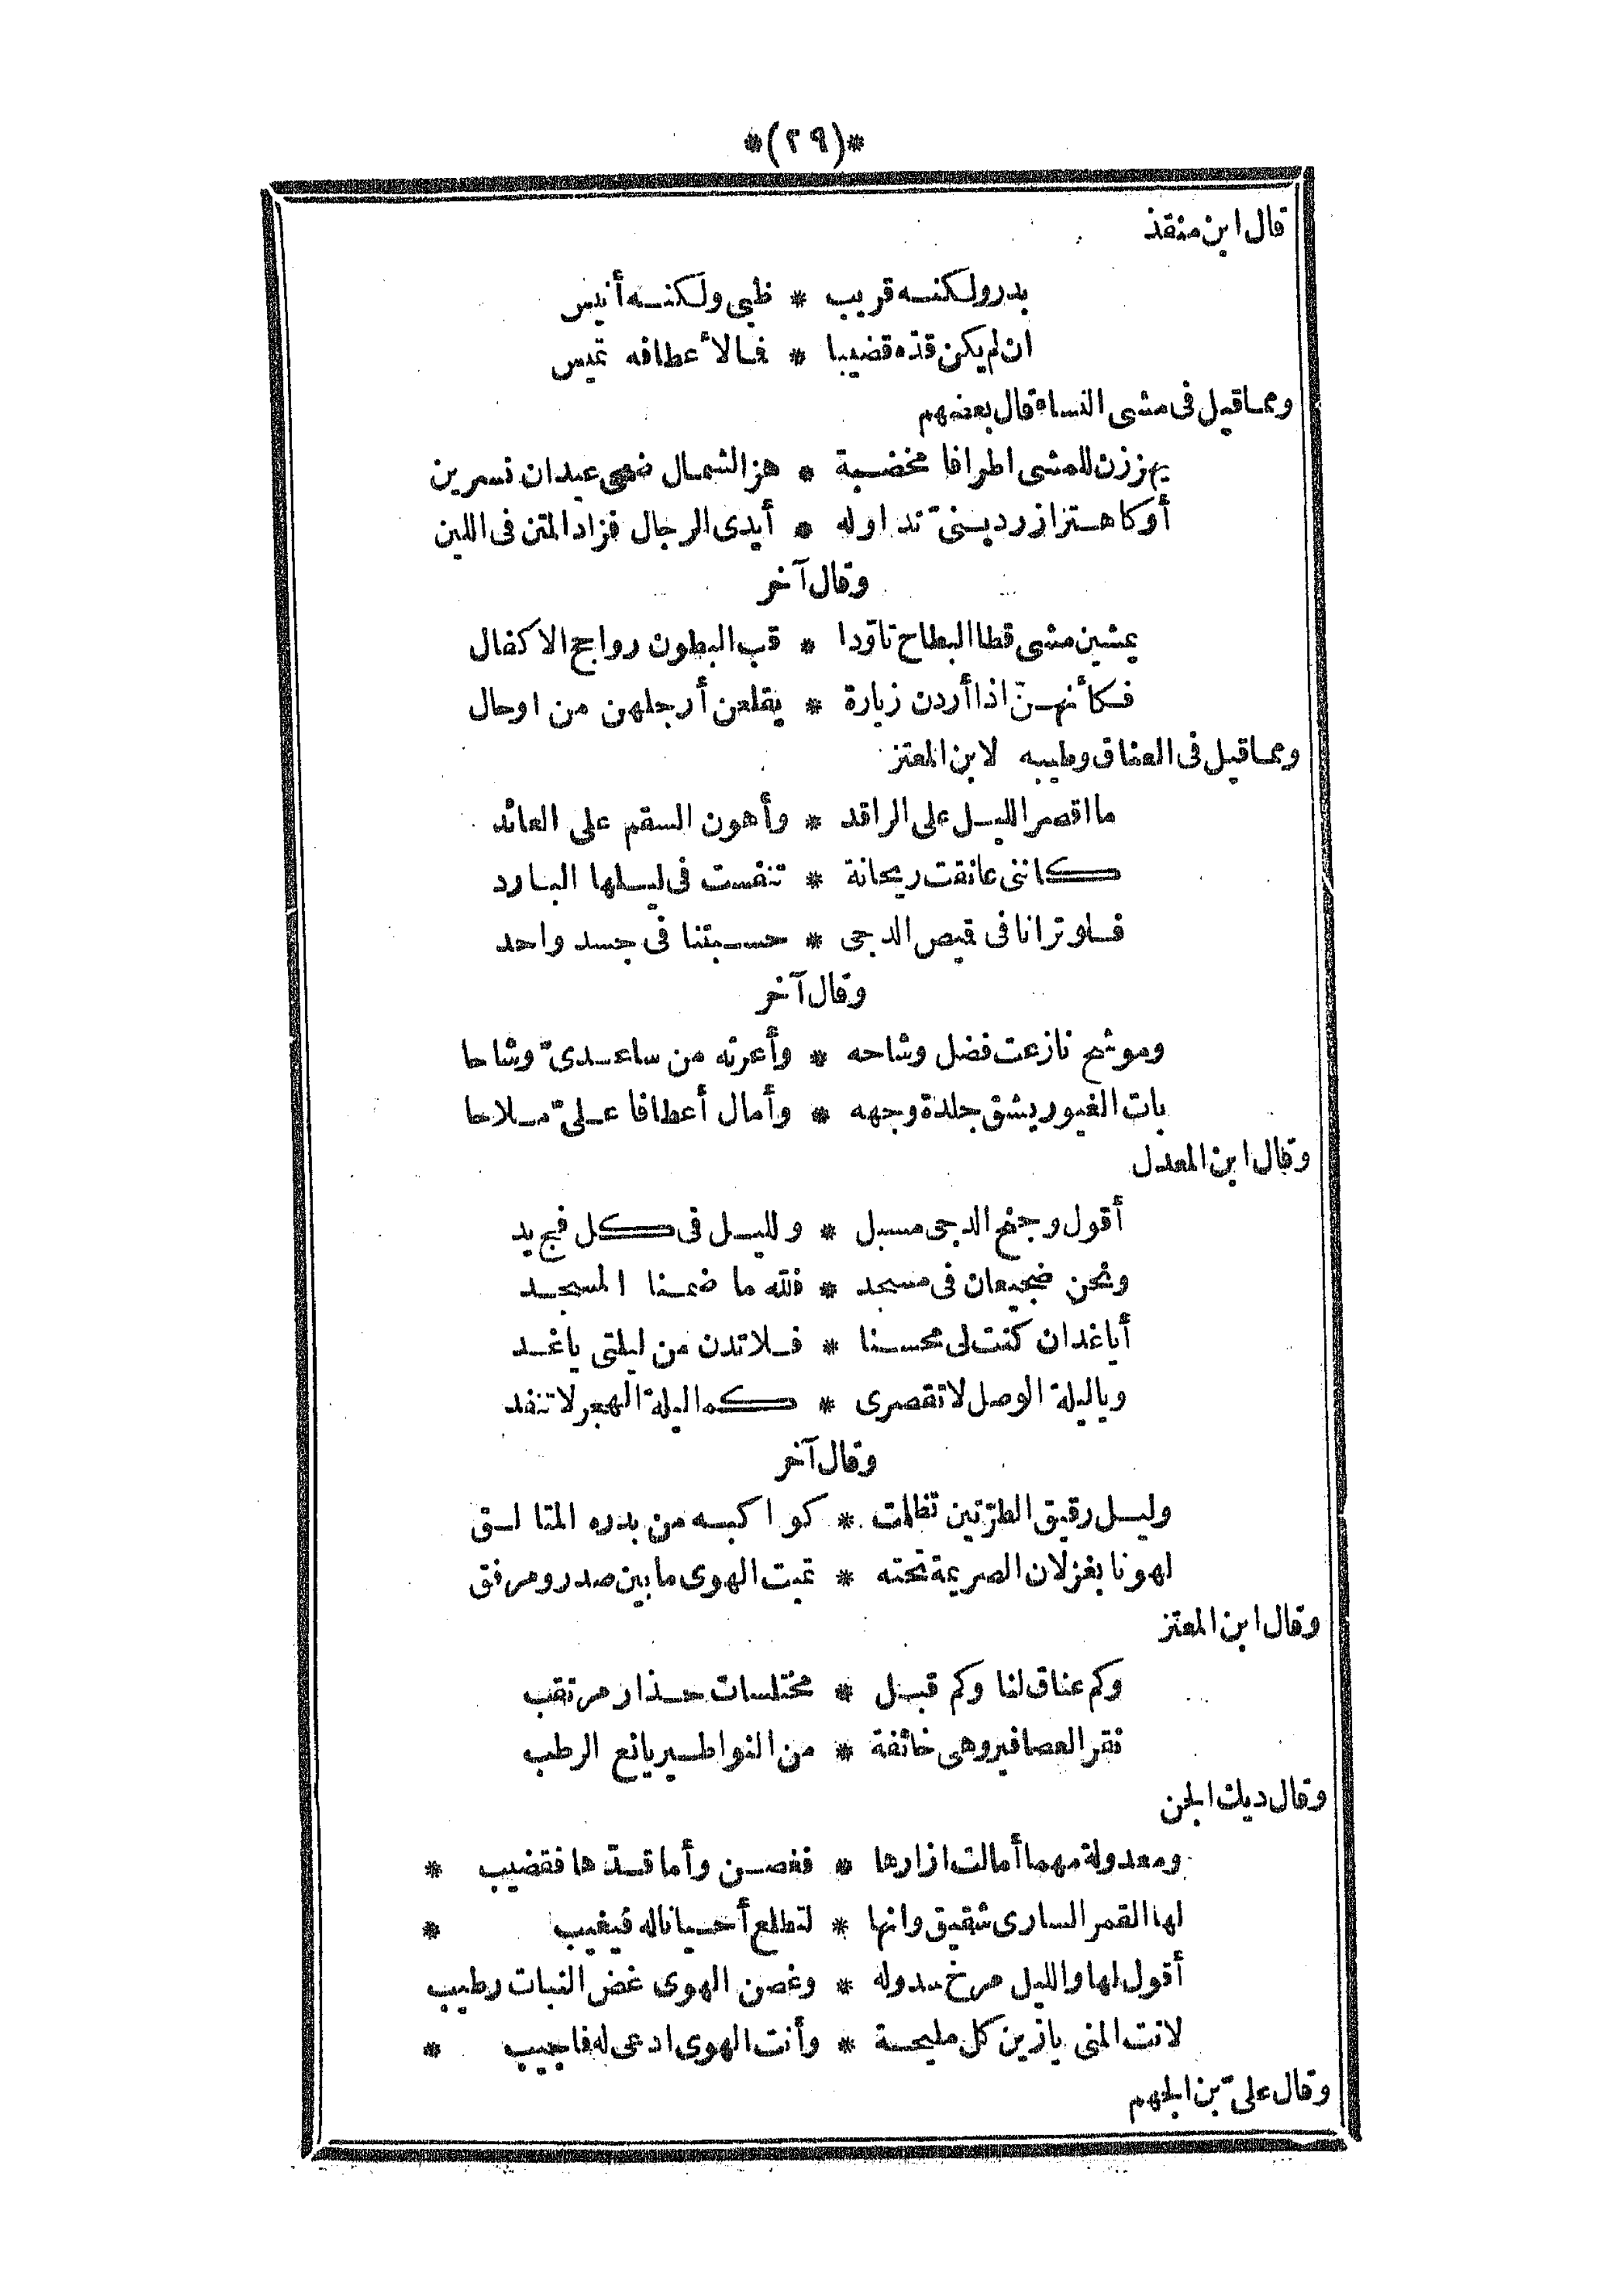 *(٢٩)*
قال ابن منقذ
بدر ولكنه قريب * ظبى ولكنه أنيس
ان لم يكن قدّه قضيبا * فما لأعطافه تميس
ومما قيل فى مشى النساء قال بعضهم
يهززن للمشى اطرافا مخضبة * هز الشمال ضحى عيدان نسرين
أو كاهتزاز ردينىّ تداوله * أيدى الرجال فزاد المتن فى اللين
وقال آخر
يمشين مشى قطا البطاح تاوّدا * قب البطون رواجح الاكفال
فكأنهنّ اذا أردن زيارة * يقلعن أرجلهن من اوحال
ومما قيل فى العناق وطيبه لابن المعتز
ما اقصر الليل على الراقد * وأهون السقم على العائد
كاننى عانقت ريحانة * تنفست فى ليلها البارد
فلو ترانا فى قيص الدجى * حسبتنا فى جسد واحد
وقال آخر
وموشح نازعت فضل وشاحه * وأعرته من ساعدىّ وشاحا
بات الغيور يشق جلدة وجهه * وأمال أعطافا علىّ ملاحا
وقال ابن المعدل
أقول وجنح الدجى مسبل * ولليل فى كل فج يد
ونحن ضجيعان فى مسجد * فلله ما ضمنا المسجد
أيا غد ان كنت لى محسنا * فلا تدن من ليلتى يا غد
ويا ليلة الوصل لا تقصرى * كما ليلة الهجر لا تنفد
وقال آخر
وليل رقيق الطرّتين تظلمت * كواكبه من بدره المتالق
لهونا بغزلان الصريمة تحته * تميت الهوى ما بين صدر ومرفق
وقال ابن المعتز
وكم عناق لنا وكم قبل * مختلسات حذار مرتقب
نقر العصافير وهى خائفة * من النواطير يانع الرطب
وقال ديك الجن
ومعدولة مهما أمالت ازارها * فغصن وأما قدّها فقضيب *
لها القمر السارى شقيق وانها * لتطلع أحيانا له فيغيب *
أقول لها والليل مرخ سدوله * وغصن الهوى غض النبات رطيب
لانت المنى يازين كل مليحة * وأنت الهوى ادعى له فاجيب *
وقال علىّ بن الجهم